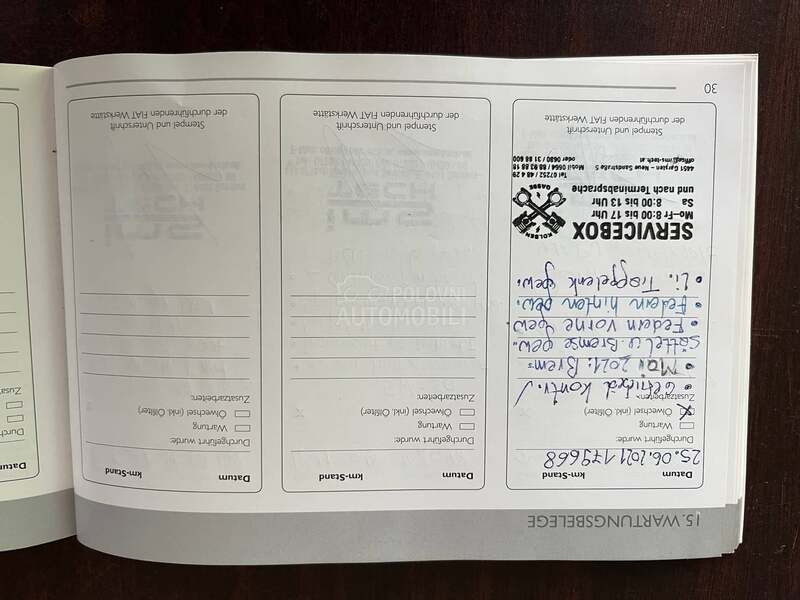 15. WARTUNGSBELEGE
Datum km-Stand
25.06.2021 179668
Durchgeführt wurde:
Wartung
Ölwechsel (inkl. Ölfilter)
Zusatzarbeiten:
• Getriebeöl kontr. ✓
• Mai 2021: Brem=
sättel u. Bremse gew.
• Federn vorne gew.
• Federn hinten gew.
• Li. Traggelenk gew.
SERVICEBOX
Mo–Fr 8:00 bis 17 Uhr
Sa 8:00 bis 13 Uhr
und nach Terminabsprache
KOLBEN
GARAGE
4451 Garsten – Neue Sandstraße 5
Tel 07252 / 48 4 29
Mobil 0664 88 93 88 18
office@ims-tech.at
oder 0680 / 31 88 600
Stempel und Unterschrift
der durchführenden FIAT Werkstätte
Datum km-Stand
Durchgeführt wurde:
Wartung
Ölwechsel (inkl. Ölfilter)
Zusatzarbeiten:
Stempel und Unterschrift
der durchführenden FIAT Werkstätte
Datum km-Stand
Durchgeführt wurde:
Wartung
Ölwechsel (inkl. Ölfilter)
Zusatzarbeiten:
Stempel und Unterschrift
der durchführenden FIAT Werkstätte
30
Datum
Durch
Zusatz
POLOVNI
AUTOMOBILI